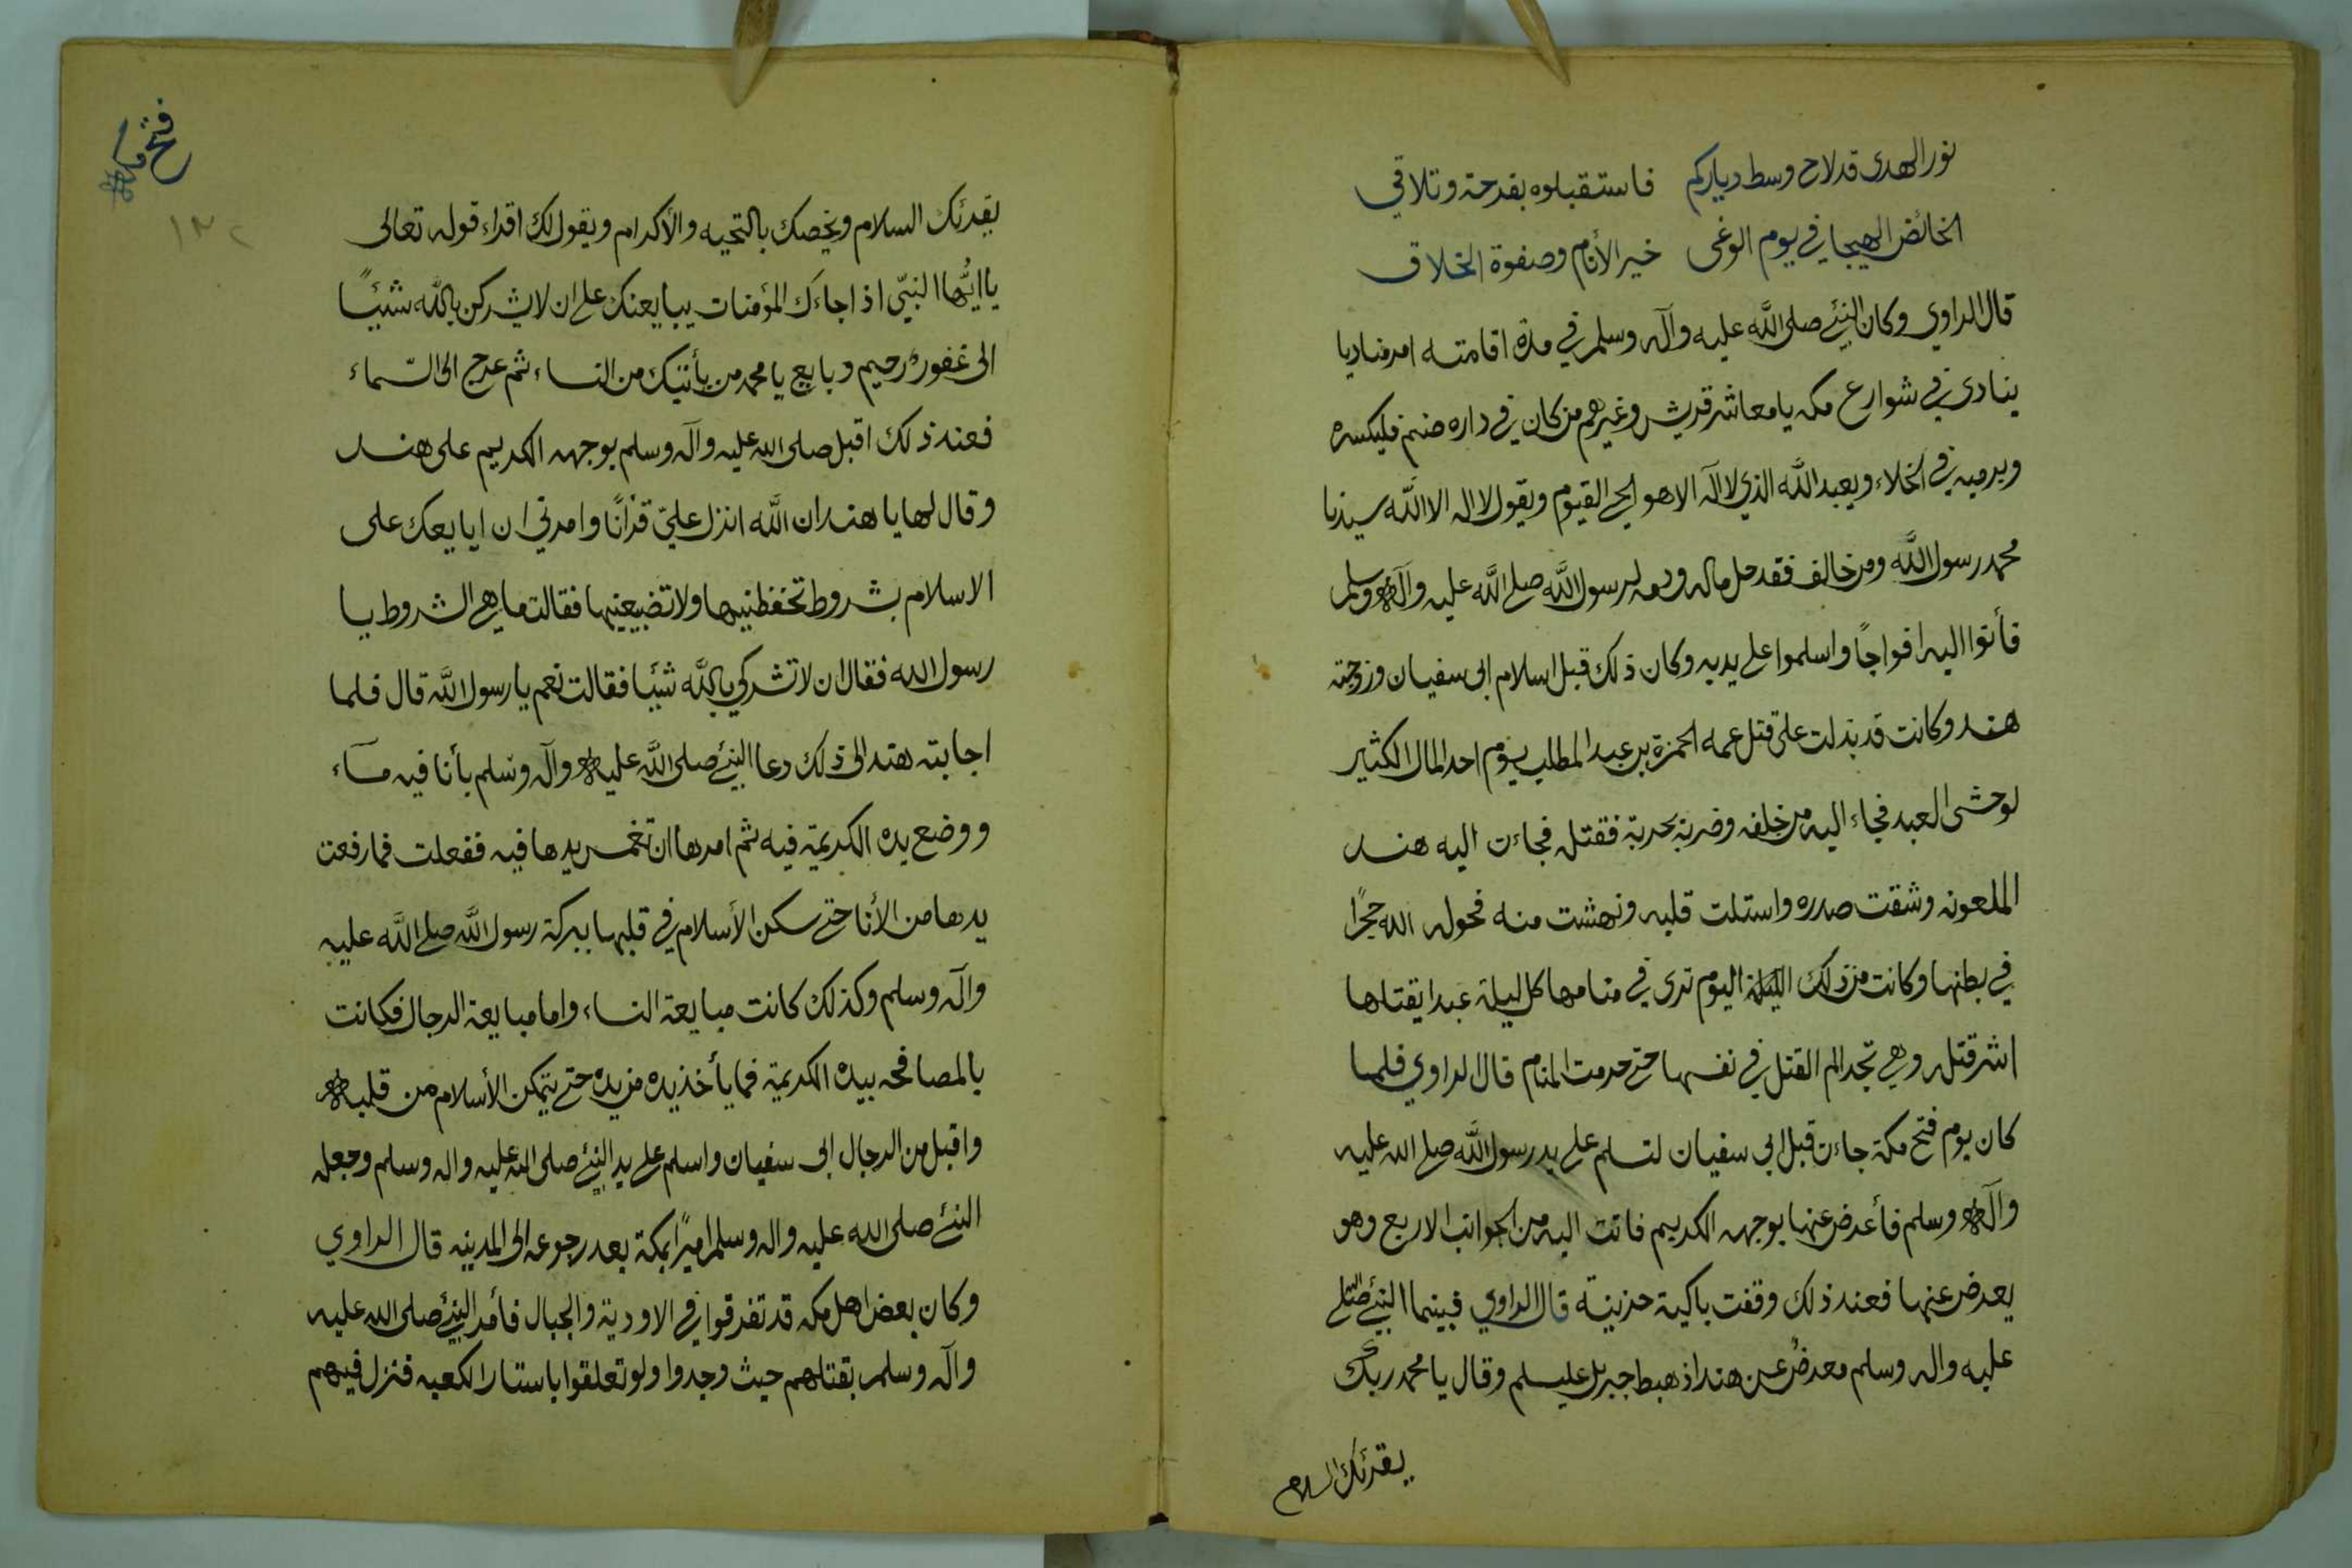 نور الهدى قد لاح وسط دياركم فاستقبلوه بفرحة وتلاقي
الخائض الهيجا في يوم الوغى خير الأنام وصفوة الخلاق
قال الراوي وكان النبئ صلى الله عليه وآله وسلم في مدة اقامته امر مناديا
ينادي في شوارع مكه يا معاشر قريش وغيرهم من كان في داره صنم فليكسره
ويرميه في الخلاء ويعبد الله الذي لا آله الا هو الحي القيوم ويقول لا اله الا الله سيدنا
محمد رسول الله ومن خالف فقد حل ماله ودمه لرسول الله صلى الله عليه وآله وسلم
فأتوا اليه افواجًا واسلموا على يديه وكان ذلك قبل اسلام ابى سفيان وزوجته
هند وكانت قد بذلت على قتل عمه الحمزة بن عبد المطلب يوم احد المال الكثير
لوحشى العبد فجاء اليه من خلفه وضربه بحربة فقتله فجاءت اليه هند
الملعونه وشقت صدره واستلت قلبه ونهشت منه فحوله الله حجرًا
في بطنها وكانت من ذلك الليلة اليوم ترى في منامها كل ليلة عبدا يقتلها
اشر قتله وهي تجد الم القتل في نفسها حتى حرمت المنام قال الراوي فلما
كان يوم فتح مكة جاءت قبل ابى سفيان لتسلم على يد رسول الله صلى الله عليه
وآله وسلم فأعرض عنها بوجهه الكريم فاتت اليه من الجوانب الاربع وهو
يعرض عنها فعند ذلك وقفت باكية حزينة قال الراوي فبينما النبئ صلى
عليه واله وسلم معرضٌ عن هند اذ هبط جبريل عليسلم وقال يا محمد ربك
يقرئك السلام
فتح مكه
١٣٢
يقرئك السلام ويخصك بالتحيه والأكرام ويقول لك اقراء قوله تعالى
يا ايُّها النبيّ اذا جاءَك المؤمنات يبايعنك على ان لا يشركن بالله شيئًا
الى غفور رحيم وبايع يا محمد من يأتيك من النساء ثم عرج الى السّماء
فعند ذلك اقبل صلى الله عليه وآله وسلم بوجهه الكريم على هند
وقال لها يا هند ان الله انزل عليّ قرآنًا وامرني ان ابايعك على
الاسلام بشروط تحفظنيها ولا تضيعنيها فقالت ما هي الشروط يا
رسول الله فقال ان لا تشركي بالله شيئا فقالت نعم يا رسول الله قال فلما
اجابته هند الى ذلك دعا النبئ صلى الله عليه وآله وسلم بأنا فيه مآء
ووضع يده الكريمة فيه ثم امرها ان تغمس يدها فيه ففعلت فما رفعت
يدها من الأنا حتى سكن الأسلام في قلبها ببركة رسول الله صلى الله عليه
وآله وسلم وكذلك كانت مبايعة النساء واما مبايعة الرجال فكانت
بالمصافحه بيده الكريمة فما يأخذ يده من يده حتى يتمكن الأسلام من قلبه
واقبل من الرجال ابى سفيان واسلم على يد النبئ صلى الله عليه واله وسلم وجعله
النبئ صلى الله عليه واله وسلم اميرًا بمكة بعد رجوعه الى المدينه قال الراوي
وكان بعض اهل مكه قد تفرقوا في الاودية والجبال فأمر النبئ صلى الله عليه
وآله وسلم بقتلهم حيث وجدوا ولو تعلقوا باستار الكعبه فنزل فيهم